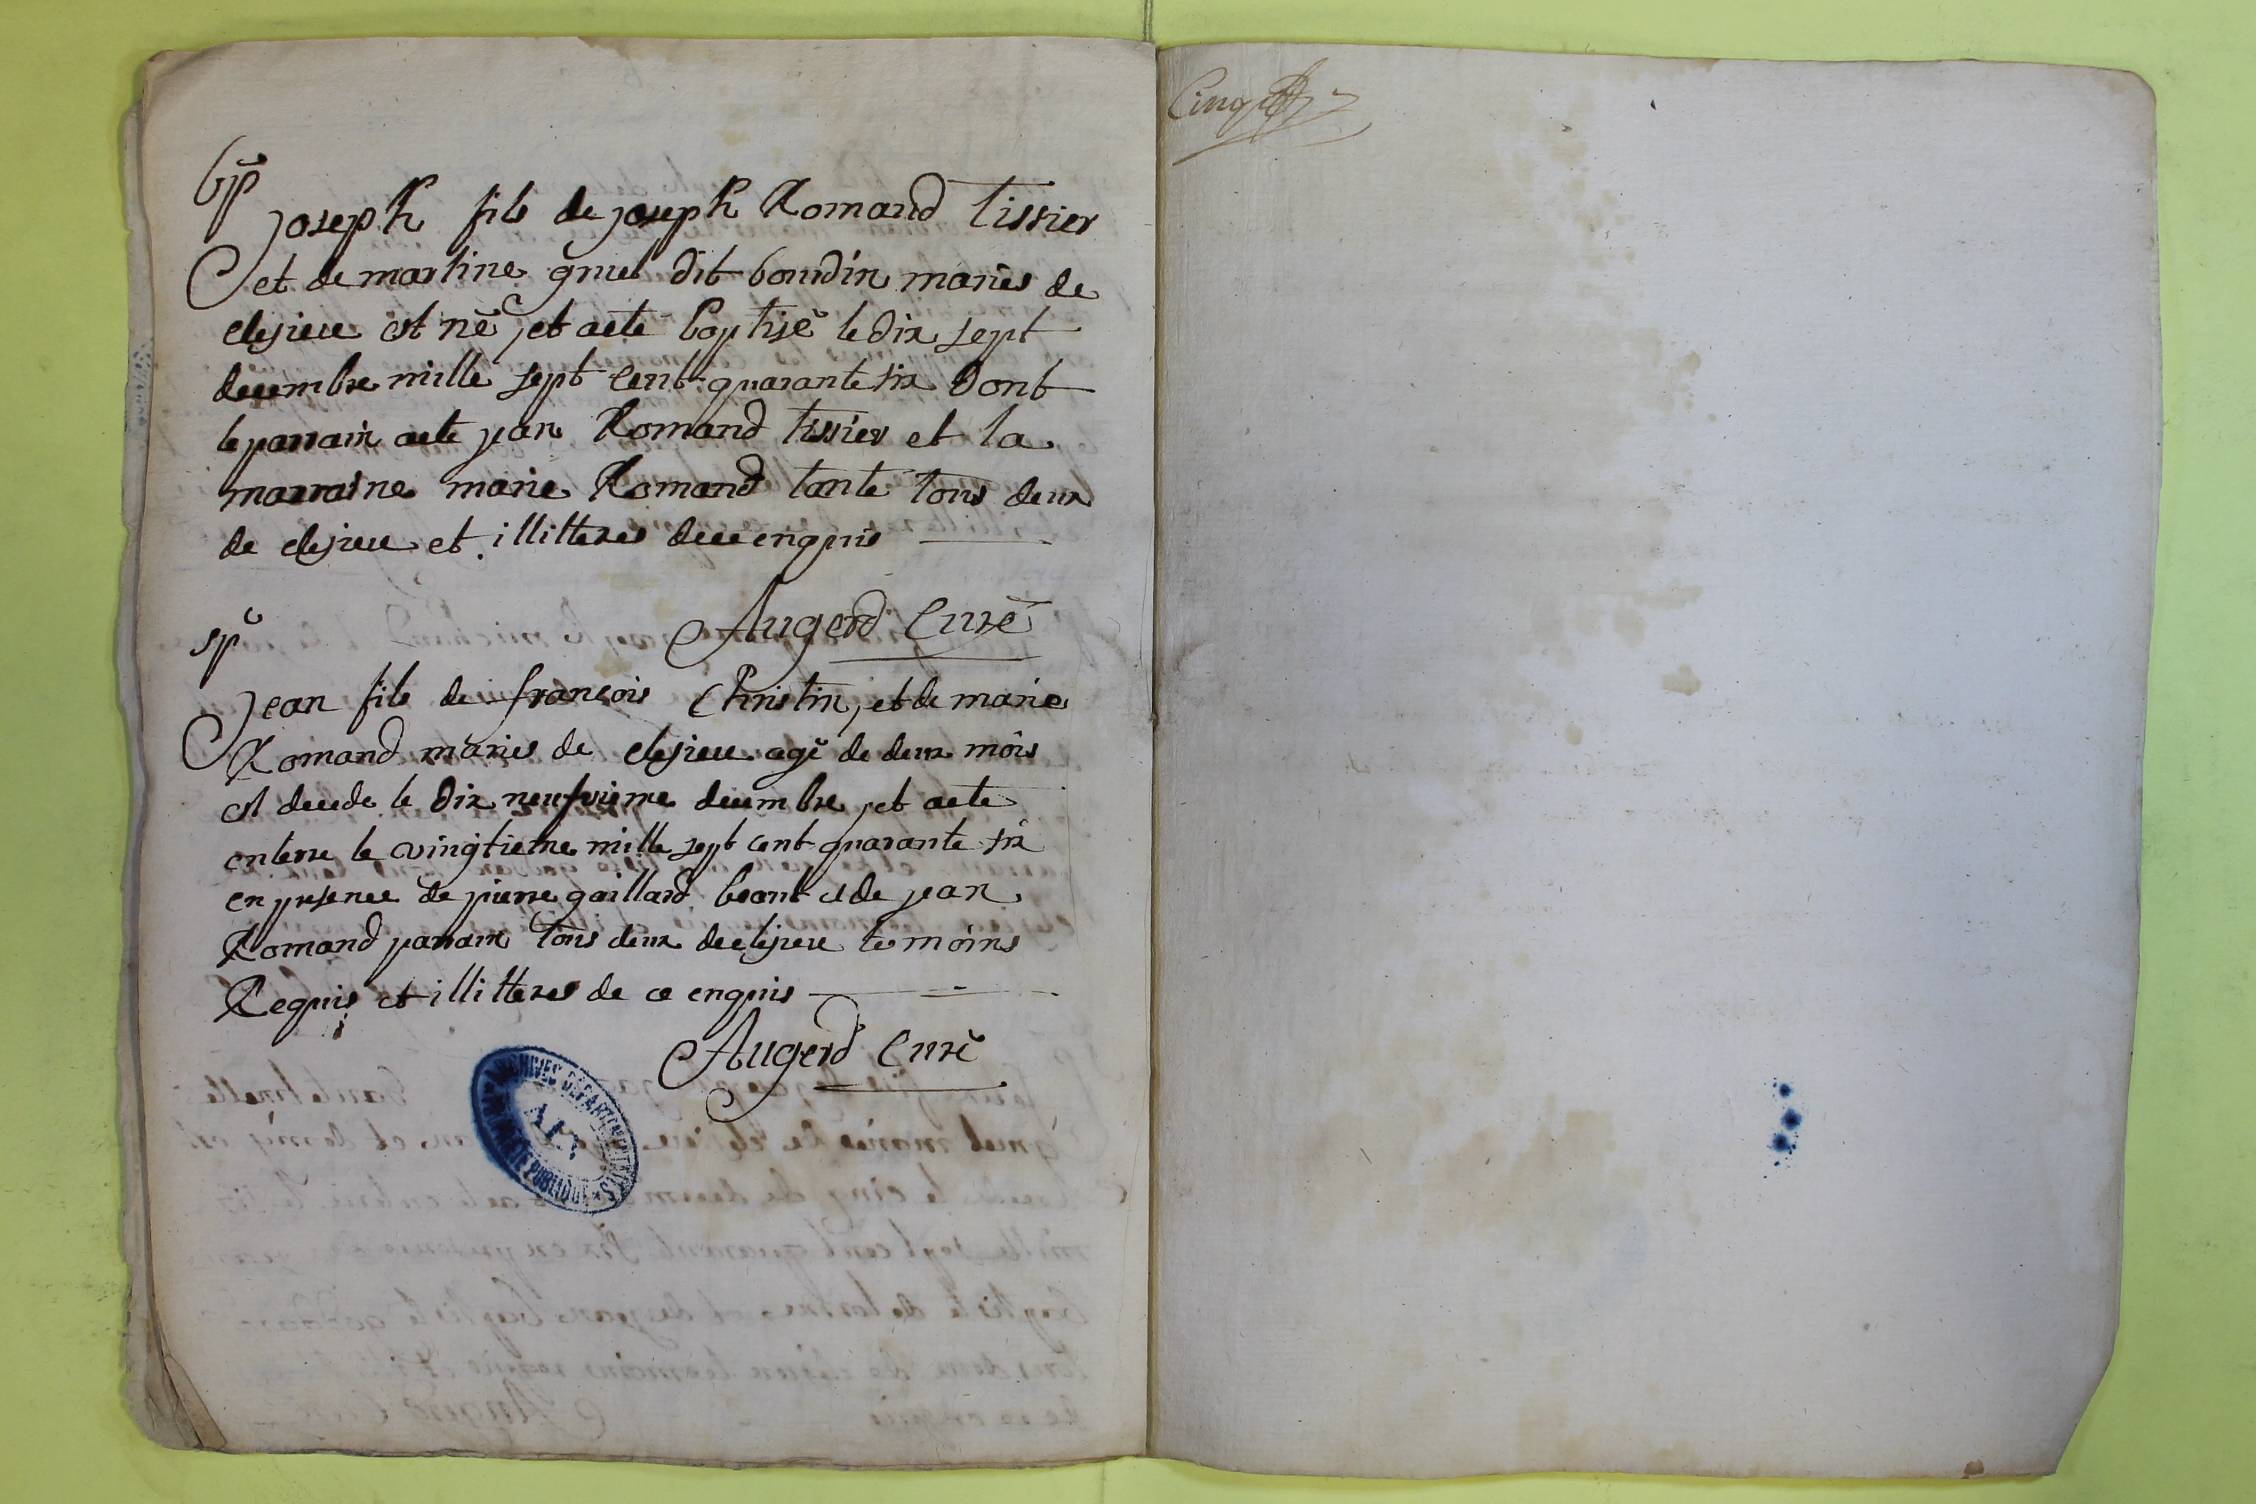 bp
joseph fils de joseph Romand tissier
et de martine gruel dit boudin maries de
clesieu est né, et aeté baptisé le dix sept
decembre mille sept cent quarante six Dont
le parrain aeté jean Romand tissier et la
marraine marie Romand tante tous deux
de clesieu et illitteres dece enquis
Augerd Curé
sp
jean fils de françois Christin, et de marie
Romand maries de clesieu agé de deux mois
est decede le dix neufvieme decembre, et aeté
enterre le vingtieme mille sept cent quarante six
en presence de pierre gaillard et de jean
Romand parrain tous deux de clesieu temoins
Requis et illitteres de ce enquis
Augerd Curé
ARCHIVES DEPARTEMENTALES
AIN
Cinq